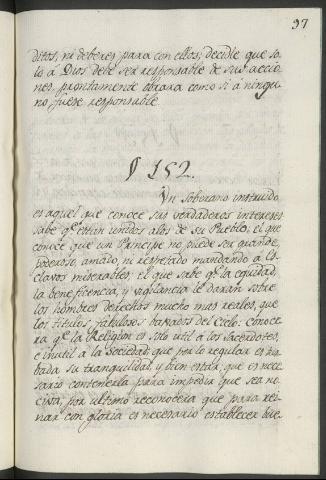 97
ditos, ni deberes para con ellos; decidle que so-
lo á Dios debe ser responsable de sus accio-
nes, prontamente obrara como si á ningu-
no fuese responsable.
§ 152.
Un Soberano instruido
es aquel que conoce sus verdaderos intereses
sabe qe. están unidos a los de su Pueblo, el que
conoce que un Principe no puede ser grande,
poderoso, amado, ni respetado mandando á Es-
clavos miserables; el que sabe qe. la equidad,
la beneficencia, y vigilancia le darán sobre
los hombres derechos mucho mas reales, que
los titulos fabulosos baxados del Cielo: conoce-
ra qe. la Religion es solo util á los Sacerdotes,
é inutil á la Sociedad; que por lo regular es tur-
bada su tranquilidad, y bien estar; que es nece-
sario contenerla para impedir que sea no-
civa; por ultimo reconocera que para rey-
nar con gloria es necesario establecer bue-